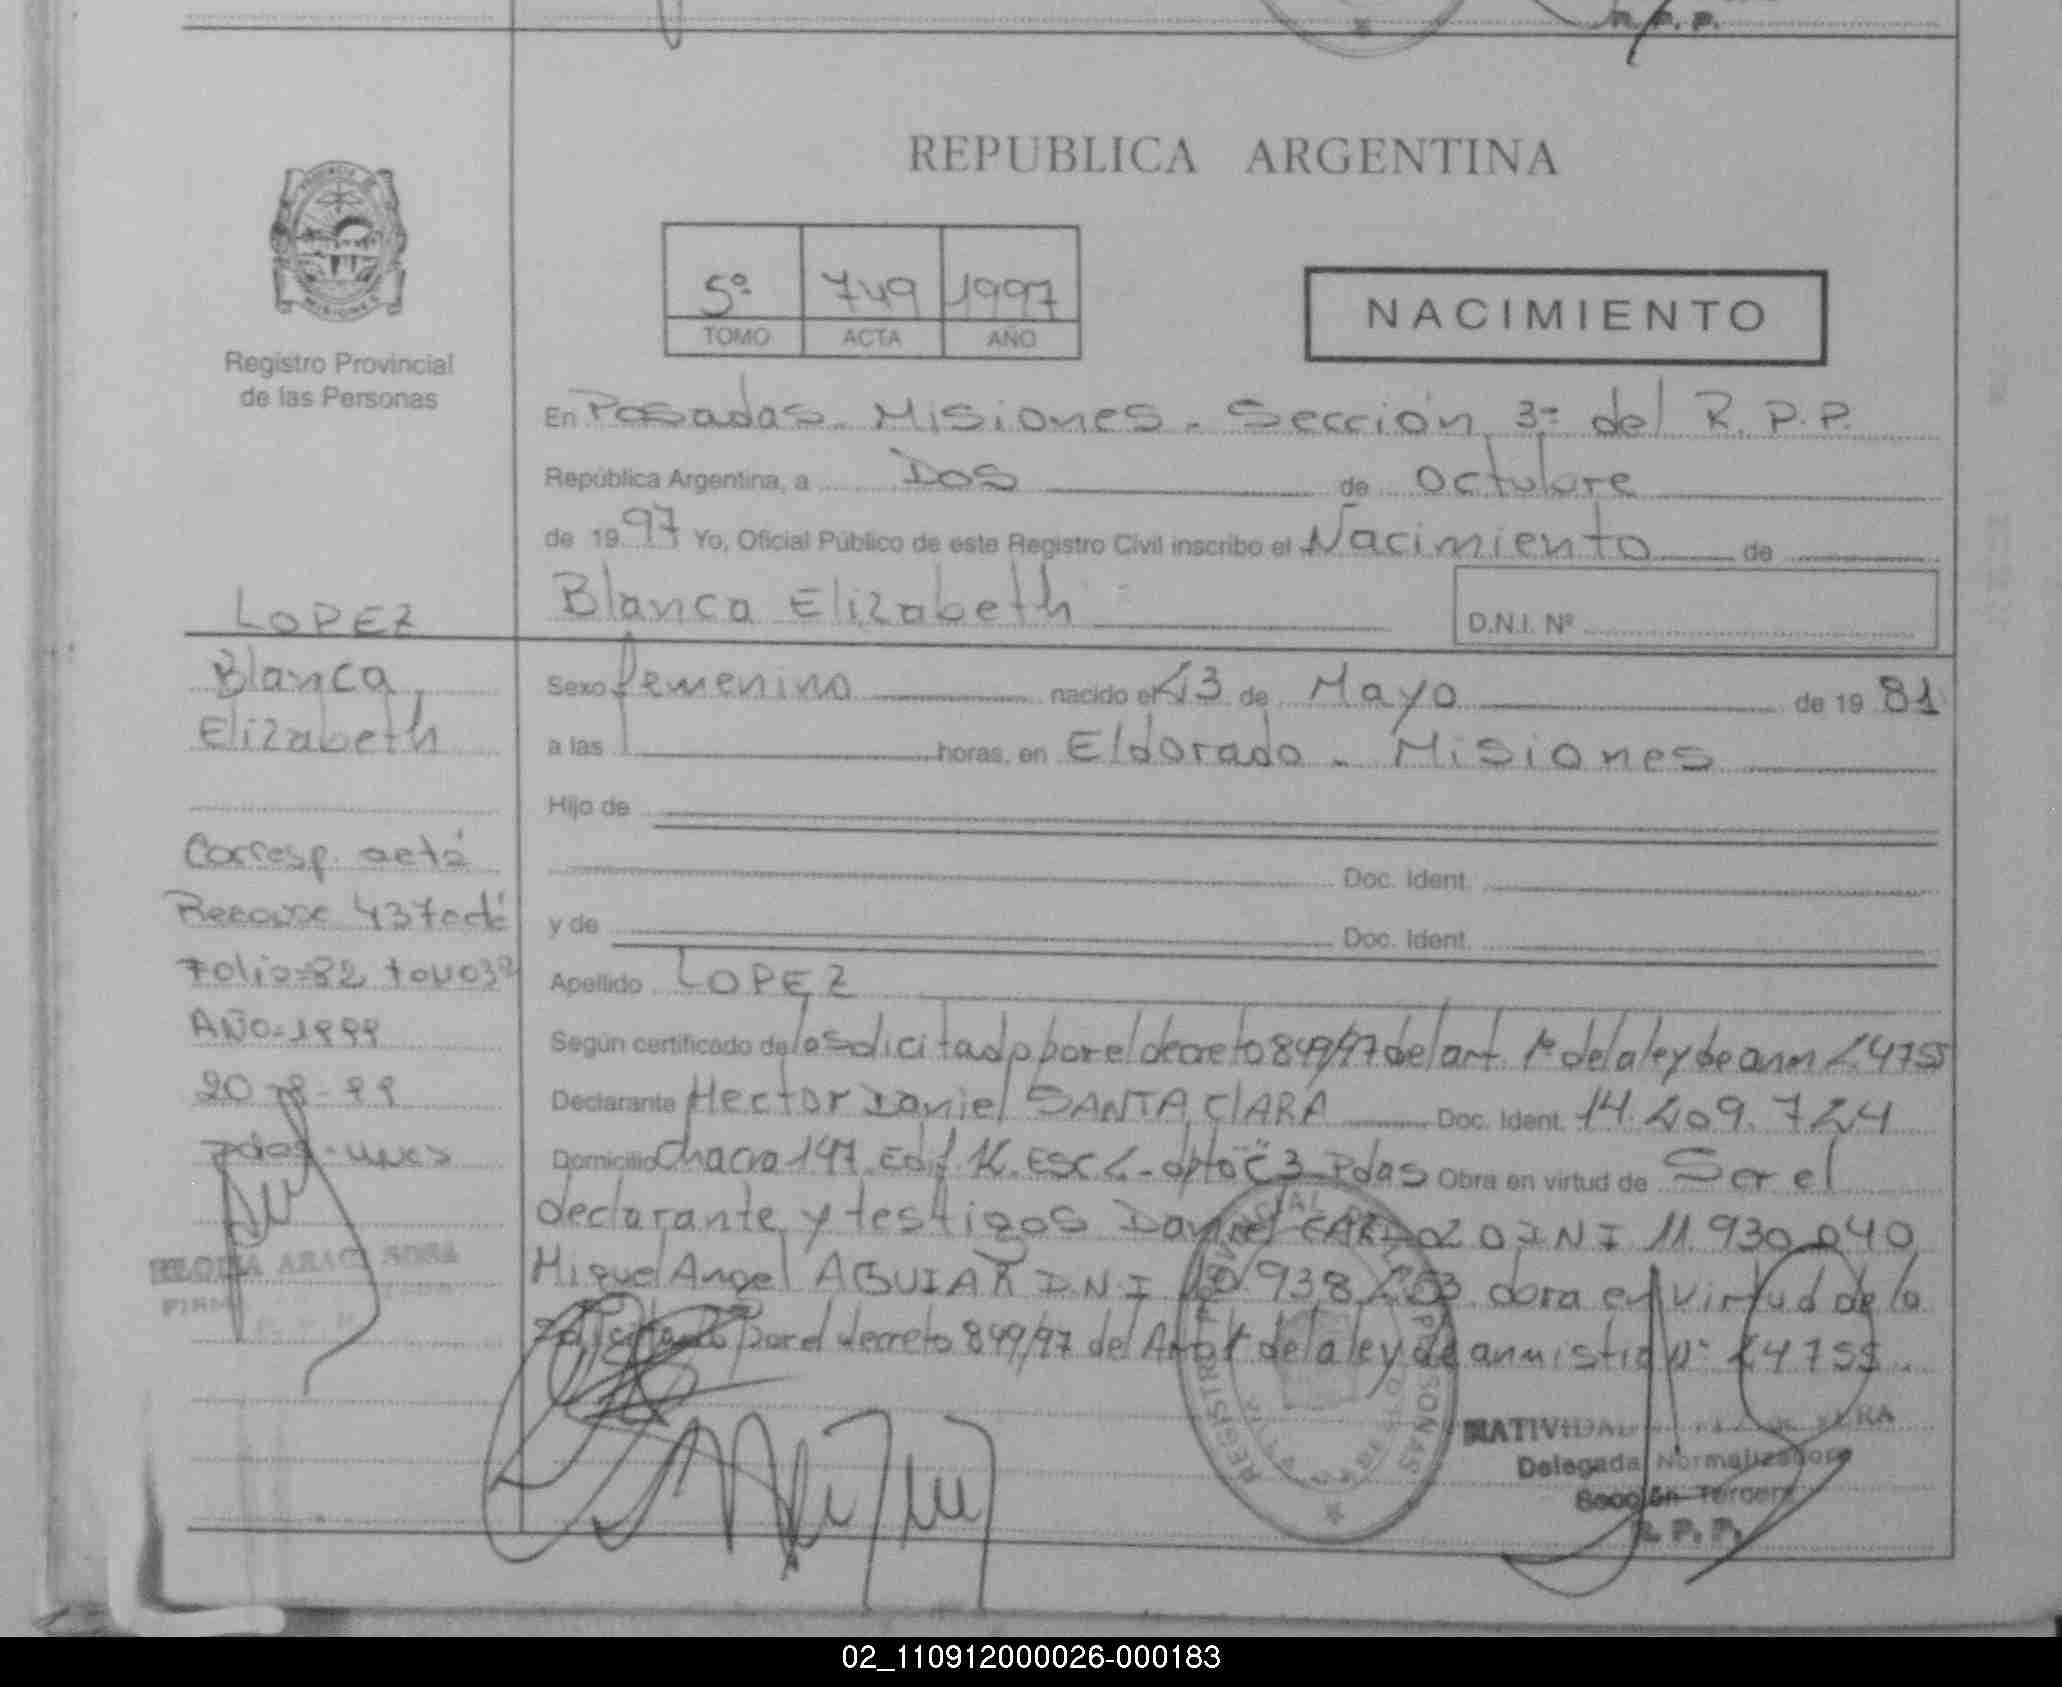 R. P. P.
REPUBLICA ARGENTINA
5º 749 1997
TOMO ACTA AÑO
NACIMIENTO
Registro Provincial
de las Personas
En Posadas - Misiones - Sección 3ª del R. P. P.
República Argentina, a Dos de Octubre
de 1997 Yo, Oficial Público de este Registro Civil inscribo el Nacimiento de
Blanca Elizabeth
D.N.I. Nº
LOPEZ
Blanca
Elizabeth
Corresp. acta
437
Folio=82 tomo 3º
AÑO=1999
Sexo femenino nacido el 23 de Mayo de 1981
a las horas, en Eldorado - Misiones
Hijo de
Doc. Ident.
y de Doc. Ident.
Apellido LOPEZ
Según certificado de lo solicitado por el decreto 849/97 del art. 1º de la ley de 24755
Declarante Hector Daniel SANTA CLARA Doc. Ident. 14.209.724
Domicilio Chacra 147 Edif 12 ESC 2 - dpto "C" 3 Pdas Obra en virtud de Ser el
declarante y testigos Daniel CARDOZO D.N.I 11.930.040
Miguel Angel AGUIAR D.N.I 938 obra en virtud de lo
solicitado por el decreto 849/97 del Art 1º de la ley de amnistia Nº 24755.
REGISTRO PROVINCIAL DE LAS PERSONAS
Delegada Normalizadora
Sección Tercera
R. P. P.
02_110912000026-000183